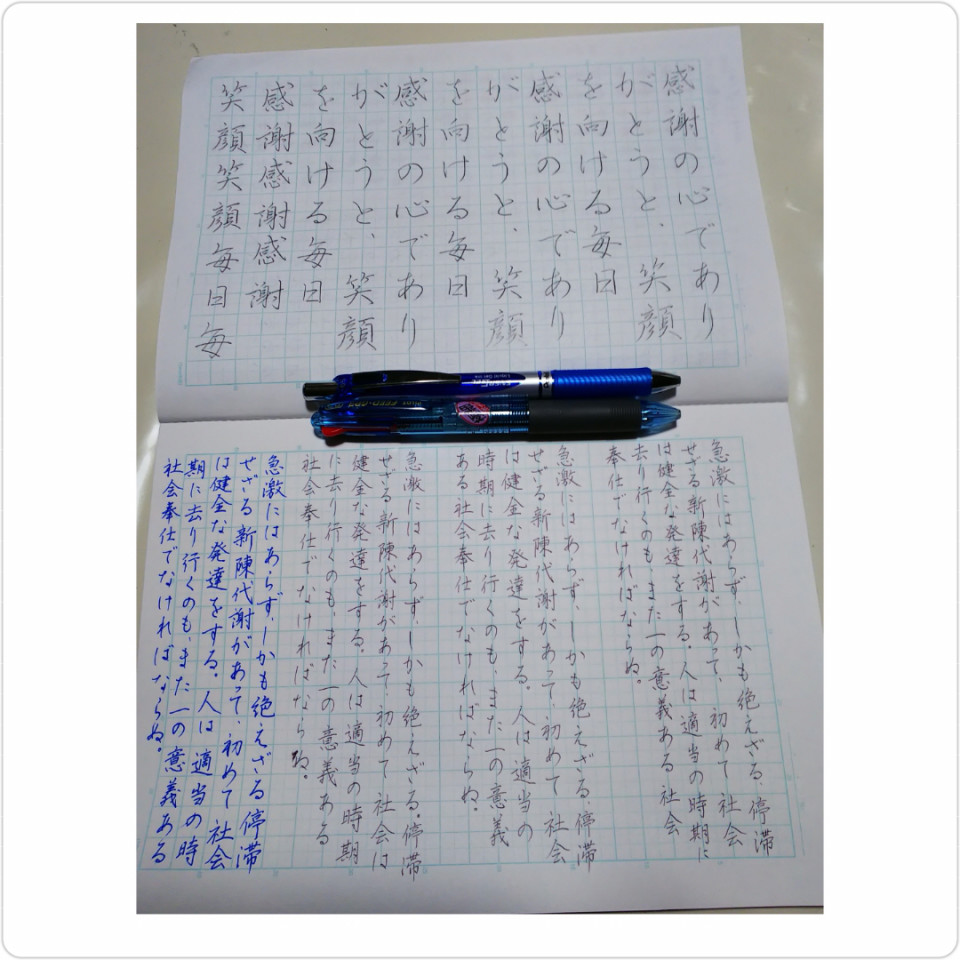 感謝の心であり
がとうと、笑顔
を向ける毎日
感謝の心であり
がとうと、笑顔
を向ける毎日
感謝の心であり
がとうと、笑顔
を向ける毎日
感謝感謝感謝
笑顔笑顔毎日毎
急激にはあらず、しかも絶えざる、停滞
せざる新陳代謝があって、初めて社会
は健全な発達をする。人は適当の時期に
去り行くのも、また一の意義ある社会
奉仕でなければならぬ。
急激にはあらず、しかも絶えざる、停滞
せざる新陳代謝があって、初めて社会
は健全な発達をする。人は適当の
時期に去り行くのも、また一の意義
ある社会奉仕でなければならぬ。
急激にはあらず、しかも絶えざる。停滞
せざる新陳代謝があって、初めて社会は
健全な発達をする。人は適当の時期
に去り行くのも、また一の意義ある
社会奉仕でなければならぬ。
急激にはあらず、しかも絶えざる停滞
せざる新陳代謝があって、初めて社会
は健全な発達をする。人は適当の時
期に去り行くのも、また一の意義ある
社会奉仕でなければならぬ。